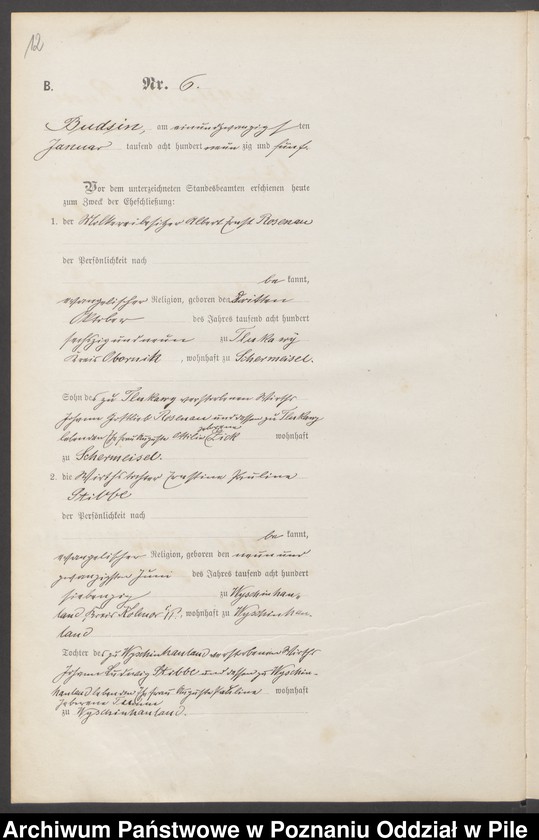 12
B. Nr. 6.
Budsin, am einundzwanzigsten
Januar tausend acht hundert neunzig und fünf.
Vor dem unterzeichneten Standesbeamten erschienen heute
zum Zweck der Eheschließung:
1. der Molkereibesitzer Albert Ernst Rosenau
der Persönlichkeit nach
bekannt,
evangelischer Religion, geboren den dritten
Oktober des Jahres tausend acht hundert
sechzig und neun zu Tlukawy
Kreis Obornik, wohnhaft zu Schermeisel.
Sohn des zu Tlukawy verstorbenen Wirths
Johann Gottlieb Rosenau und dessen zu Tlukawy
lebenden Ehefrau Auguste Ottilie geborene Dick wohnhaft
zu Schermeisel.
2. die Wirthstochter Ernstine Pauline
Stibbe
der Persönlichkeit nach
bekannt,
evangelischer Religion, geboren den neun und
zwanzigsten Juni des Jahres tausend acht hundert
siebenzig zu Wyschinhau-
land, Kreis Kolmar i/P., wohnhaft zu Wyschinhau-
land
Tochter des zu Wyschinhauland verstorbenen Wirths
Johann Ludwig Stibbe und dessen zu Wyschin-
hauland lebenden Ehefrau Auguste Pauline wohnhaft
geborene
zu Wyschinhauland.
Archiwum Państwowe w Poznaniu Oddział w Pile